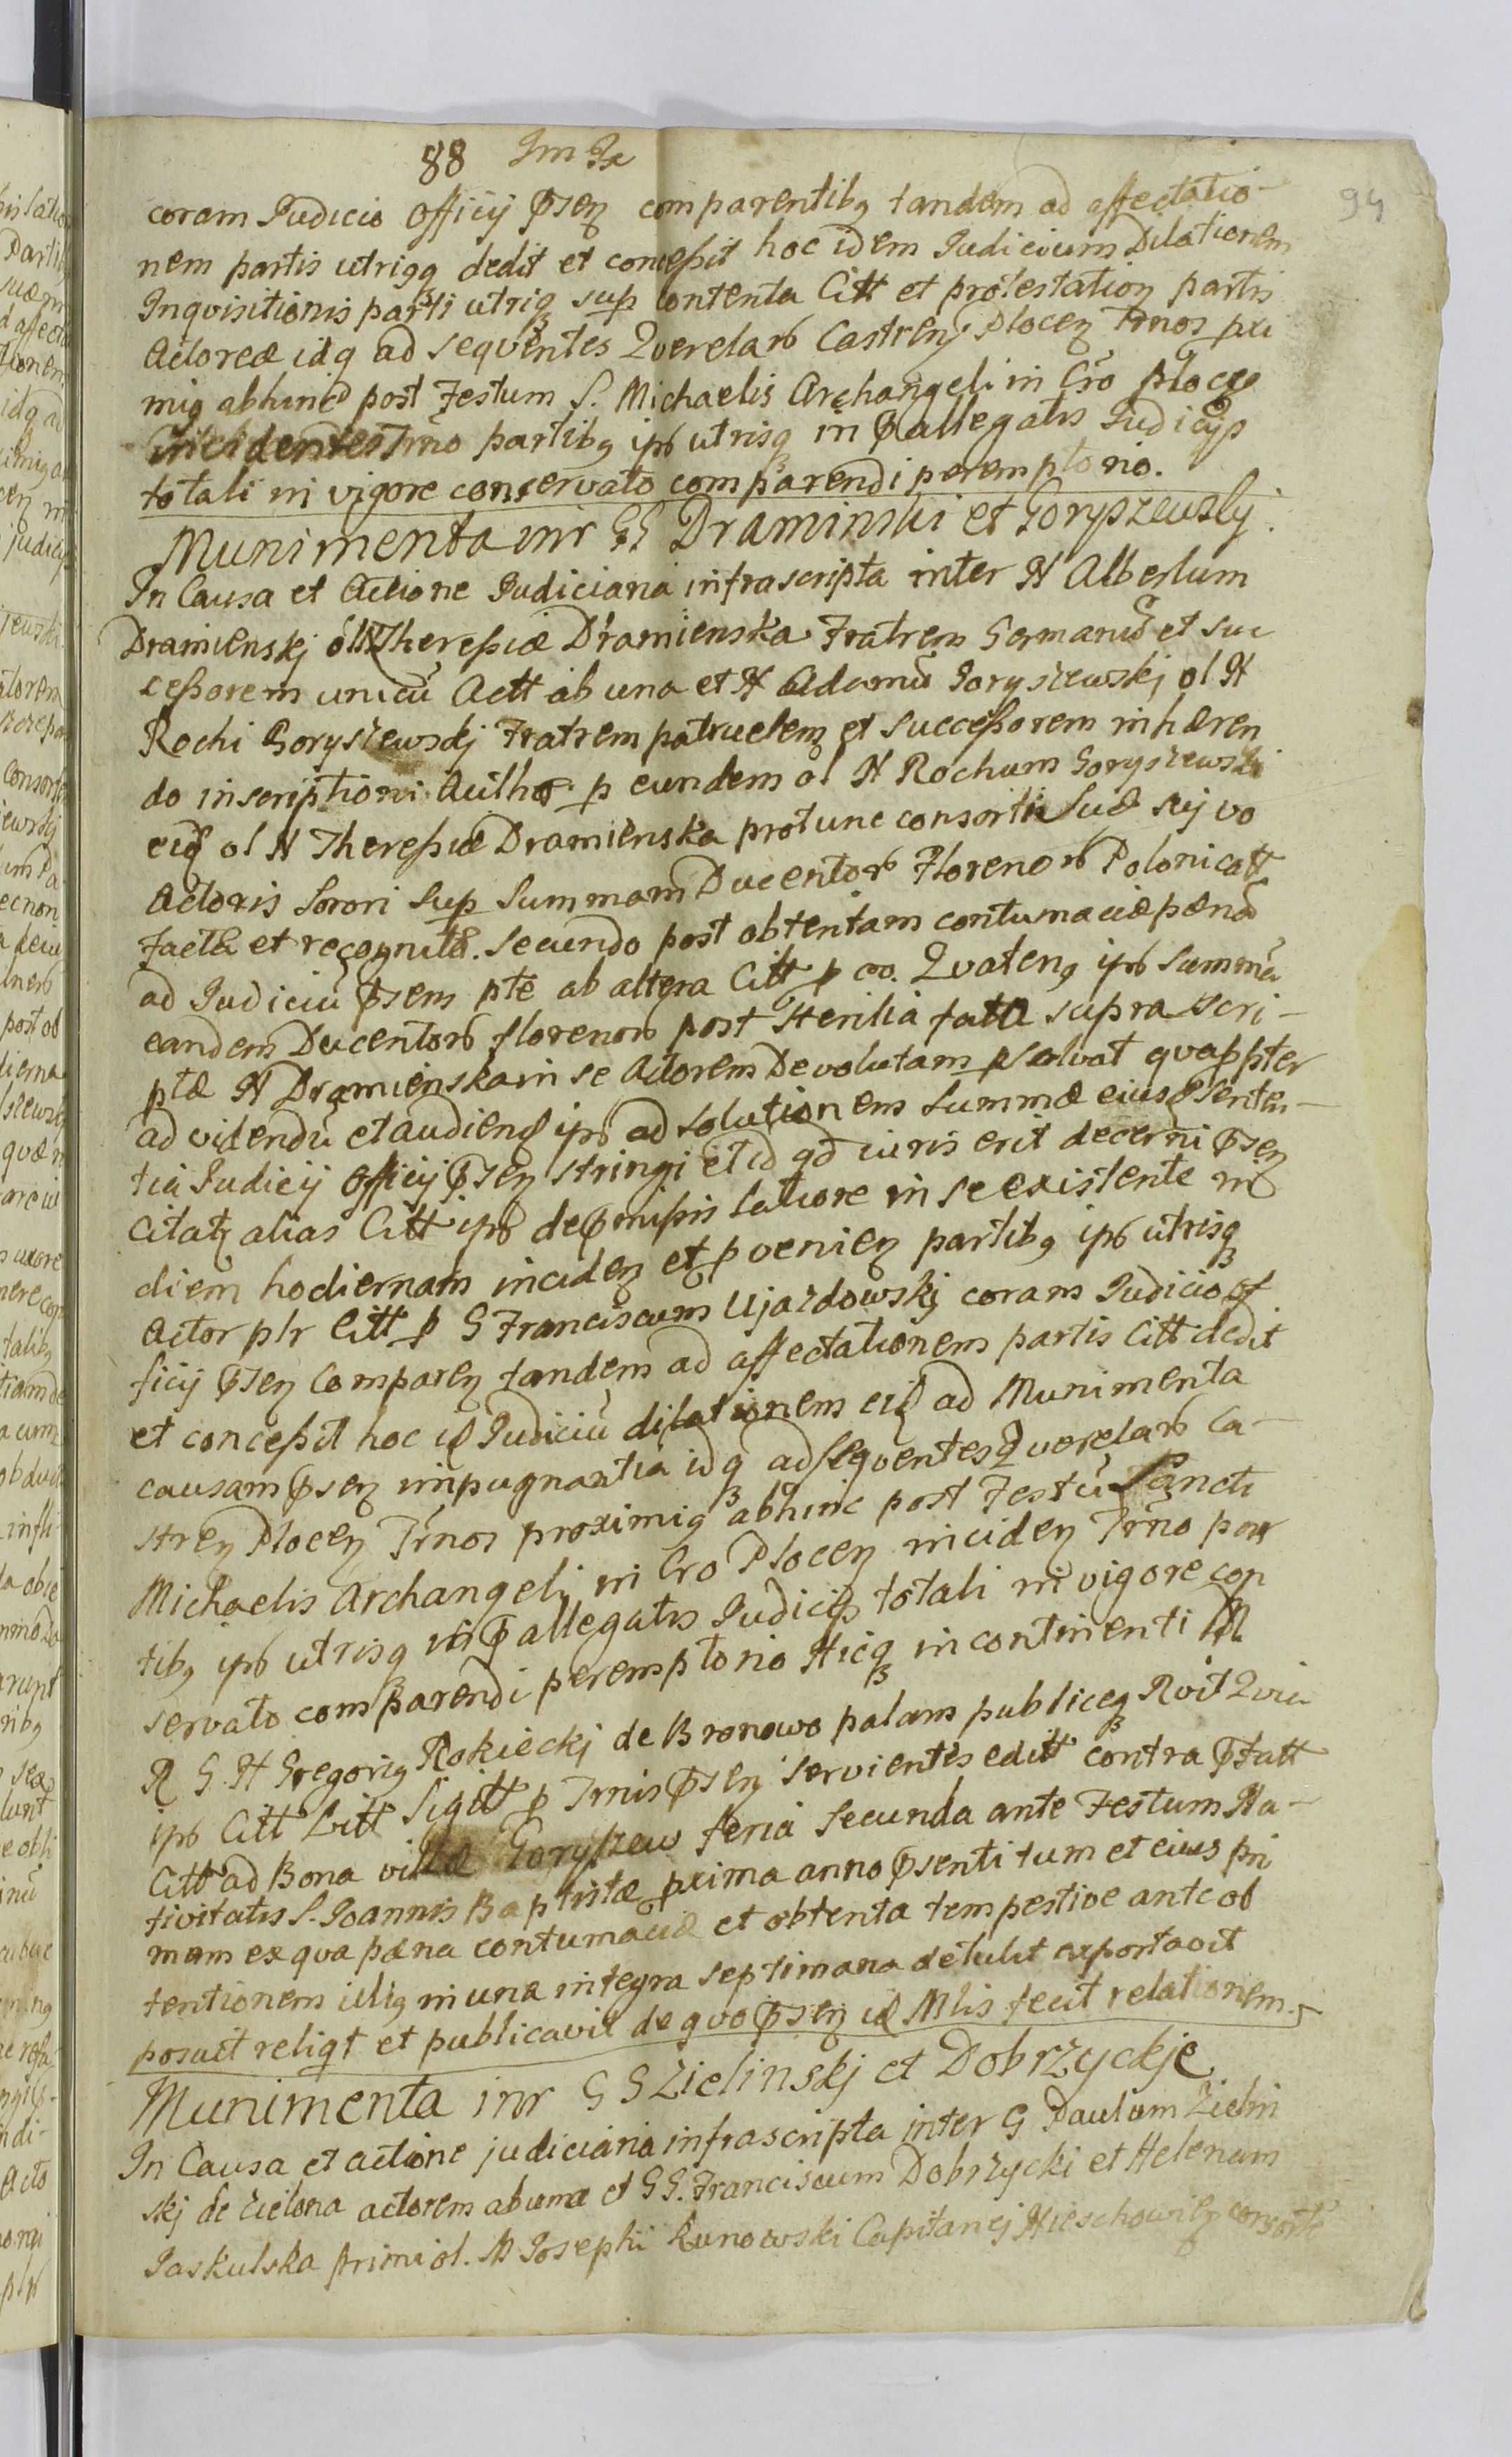 88
94
coram Judicio Officij Psen comparentibq tandem ad affectatio-
nem partis utriqq dedit et conceßit hoc idem Judicium Dilationem
Inqvisitionis parti utriq sup contenta Citt et protestation partis
Actoreæ idq ad seqventes Qverelarb Castren Plocen Trnos pxi
miq abhinc post Festum S. Michaelis Archangeli in Cro Plocen
incidentes Trno partibq ipb utrisq in Pallegatis Judicijs
totali in vigore conservato comparendi peremptorio.
Munimenta inr GG Draminski et Goryszewskj.
In Causa et Actione Judiciaria infrascripta inter N Albertum
Dramienskj ol N Thereßiæ Dramienska Fratrem Germanū et suc
ceßorem unicū Actt ab una et N Adamū Goryszewskj ol N
Rochi Goryszewskj Fratrem patruelem et Succeßorem inhæren
do inscriptioni Auth p eundem ol N Rochum Goryszewski
eid ol N Thereßiæ Dramienska protunc consorti Suæ sij vo
Actoris Sorori Sup Summam Ducentorb Florenorb Polonicatt
Facta et recognita. Secundo post obtentam contumaciæ pænā
ad Judiciū Psens pte ab altera Citt p co. Qvatenq ipb Summā
eandem Ducentorb florenorb post sterilia fata supra scri-
ptæ N Dramienska in se Actorem Devolutam psolvat qvappter
ad videndū et audiend ipb ad solutionem Summæ eiusd senten-
tia Judicij Officij Psen stringi et id qd iuris erit decerni Psen
Citat alias Citt ipb de Pmißis latiore in se existente in
diem hodiernam inciden et pvenien partibq ipb utrisq
Actor plr Citt p G Franciscum Ujazdowskj coram Judicio Of
ficij Psen Comparen tandem ad affectationem partis Citt dedit
et conceßit hoc id Judiciū dilationem eid ad Munimenta
causam Psen impugnantia idq ad seqventes Qverelarb Ca-
stren Plocen Trnos proximiq abhinc post Festū Sancti
Michaelis Archangelj in Cro Plocen inciden Trno par
tibq ipb utrisq in Pallegatis Judicijs totali in vigore con
servato comparendi peremptorio Hicq incontinenti M
R G. N Gregoriq Rokieckj de Bronowo palam publiceq Rvit Qvia
ipb Citt Litt Sigitt p Trnis Psen servientes editt contra Pfatt
Citt ad Bona villæ Goryszew feria Secunda ante Festum Na-
tivitatis S. Joannis Baptistæ pxima anno Psenti tum et eius pri
mam ex qva pæna contumaciæ et obtenta tempestive ante ob
tentionem illiq in una integra septimana detulit exportavit
posuit reliqt et publicavit de qvo Psen id Mlis fecit relationem.
Munimenta inr GG Zielinskj et Dobrzyckje
In Causa et actione judiciaria infrascripta inter G Paulum Zielin
skj de Zielona actorem ab una et GG. Franciscum Dobrzycki et Helenam
Jaskulska primi ol. M Josephi Kunowski Capitanej consorte